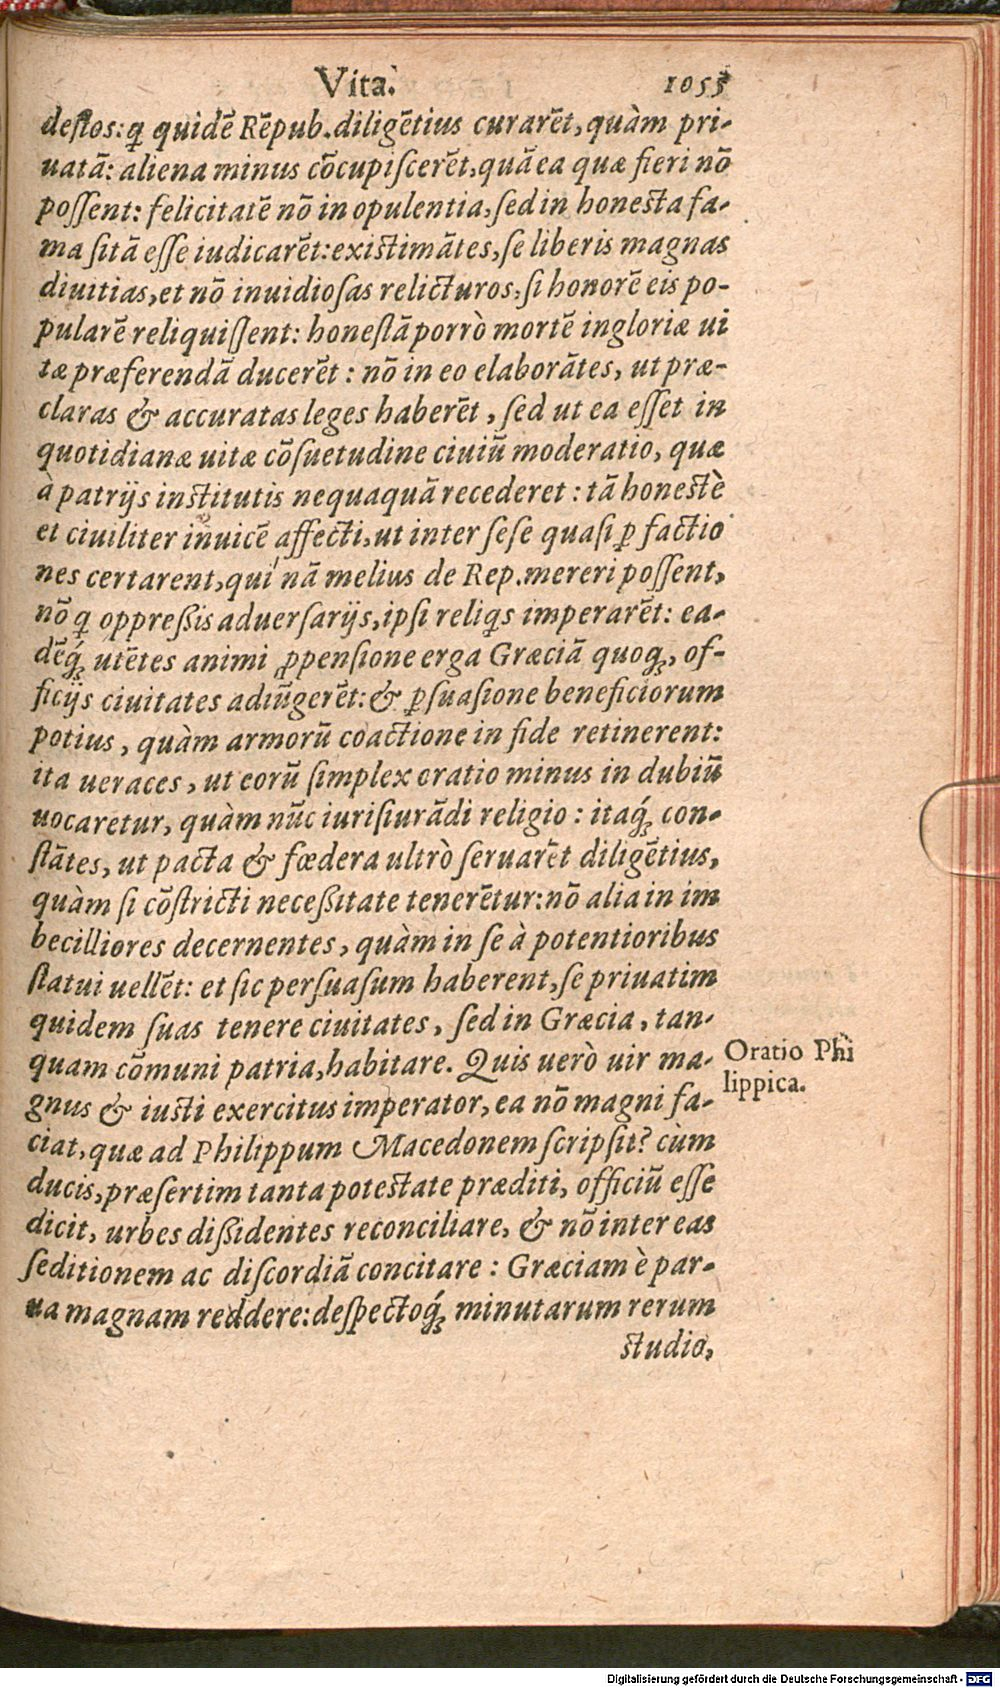 Vita. 1055
destos: ꝗ quidē Rēpub. diligētius curarēt, quàm pri-
uatā: aliena minus cōcupiſcerēt, quā ea quæ fieri nō
poſſent: felicitatē nō in opulentia, ſed in honesta fa-
ma ſitā eſſe iudicarēt: existimātes, ſe liberis magnas
diuitias, et nō inuidioſas relicturos, ſi honorē eis po-
pularē reliquiſſent: honeſtā porrò mortē ingloriæ ui
tæ præferendā ducerēt: nō in eo elaborātes, ut præ-
claras & accuratas leges haberēt, ſed ut ea eſſet in
quotidianæ uitæ cōſuetudine ciuiū moderatio, quæ
à patrijs institutis nequaquā recederet: tā honestè
et ciuiliter inuicē affecti, ut inter ſeſe quaſi ꝑ factio
nes certarent, qui nā melius de Rep. mereri poſſent,
nō ꝗ oppreßis aduerſarijs, ipſi reliqs imperarēt: ea-
dēq́ꝫ utētes animi ꝓpenſione erga Græciā quoqꝫ, of-
ficijs ciuitates adiūgerēt: & ꝑſuaſione beneficiorum
potius, quàm armorū coactione in fide retinerent:
ita ueraces, ut eorū ſimplex oratio minus in dubiū
uocaretur, quàm nūc iuriſiurādi religio: itaq́ꝫ con-
ſtātes, ut pacta & fœdera ultrò ſeruarēt diligētius,
quàm ſi cōſtricti neceßitate tenerētur: nō alia in im
becilliores decernentes, quàm in ſe à potentioribus
ſtatui uellēt: et ſic perſuaſum haberent, ſe priuatim
quidem ſuas tenere ciuitates, ſed in Græcia, tan-
quam cōmuni patria, habitare. Quis uerò uir ma-
Oratio Phi
lippica.
gnus & iusti exercitus imperator, ea nō magni fa-
ciat, quæ ad Philippum Macedonem ſcripſit? cùm
ducis, præſertim tanta potestate præditi, officiū eſſe
dicit, urbes dißidentes reconciliare, & nō inter eas
ſeditionem ac diſcordiā concitare: Græciam è par-
ua magnam reddere: deſpectoq́ꝫ minutarum rerum
studio,
Digitalisierung gefördert durch die Deutsche Forschungsgemeinschaft - DFG